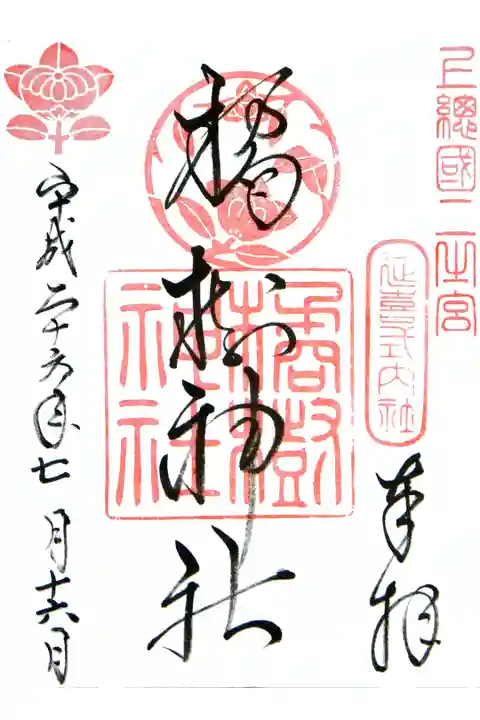 上總國二之宮
延喜式內社
奉拝
橘樹神社
橘樹神社
平成二十六年七月十六日